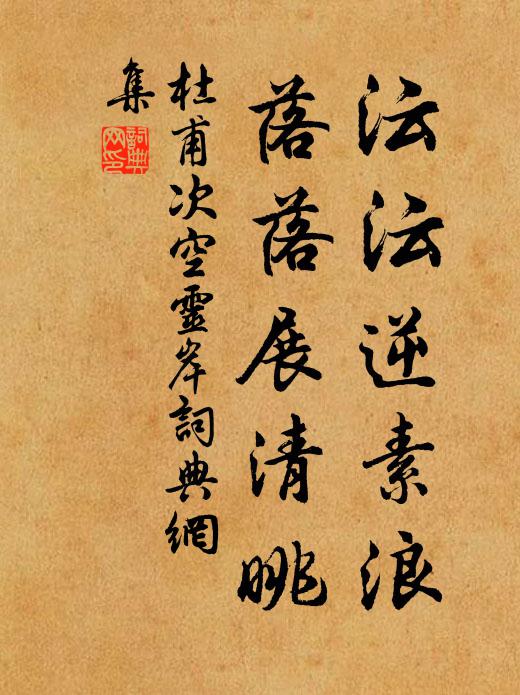 沄沄逆素浪
落落展清眺
杜甫次空靈岸詞典網
集
詞典
网印